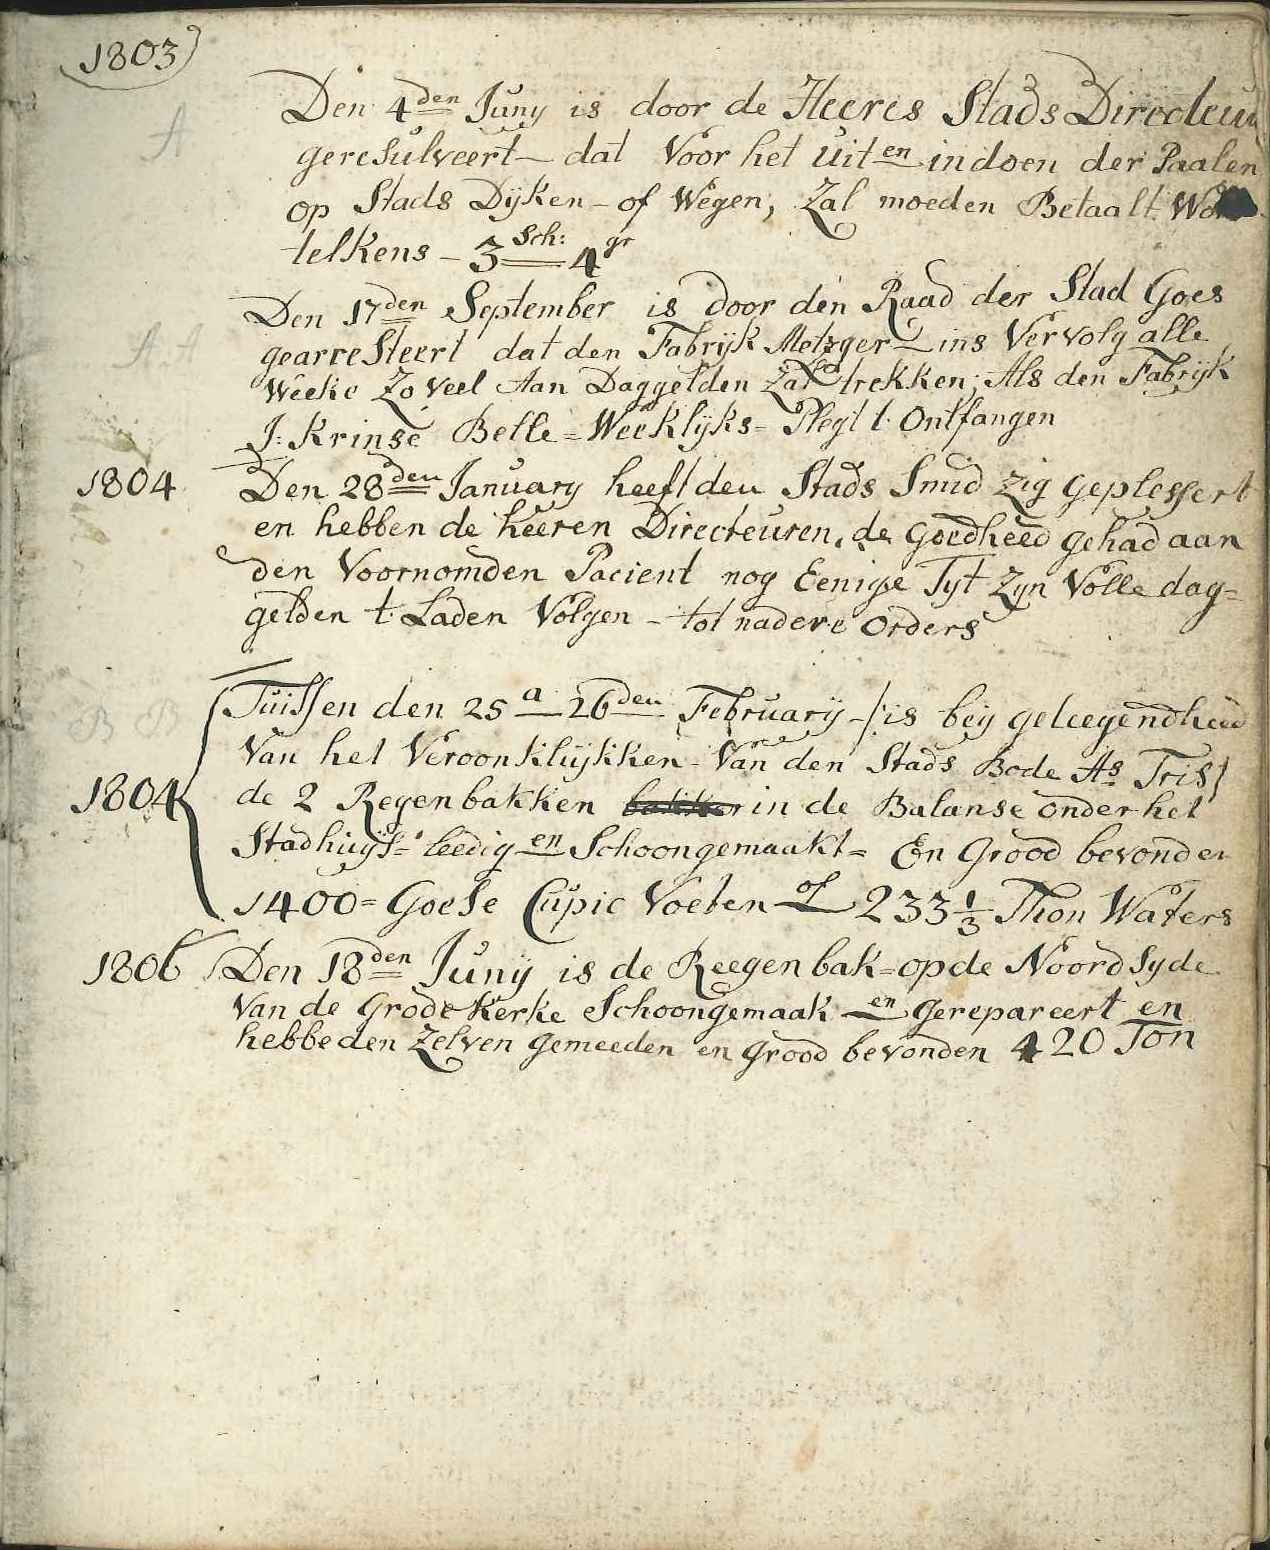 1803
Den 4den Juny is door de Heeres Stads Directeur
A
geresulveert - dat Voor het uit en indoen der Paalen
op Stads Dyken - of Wegen, Zal moeden Betaalt
telkens - 3 Sch: 4 gr
Den 17den September is door den Raad der Stad Goes
gearresteert dat den Fabryk Metzger - ins Vervolg alle
A A
Weeke Zo veel Aan Daggelden Zal trekken; Als den Fabryk
J: Krinse Belle = Weeklyks = Plegt t. Ontfangen
1804 Den 28den January heeft den Stads Smid Zig geplessert
en hebben de heeren Directeuren, de Goedheed gehad aan
den Voornomden Pacient nog Eenige Tyt Zyn Volle dag=
gelden t Laden Volgen - tot nadere Orders
Tuissen den 25 a 26den February - / is bey geleegendheed
B B
Van het Veroonkluykken - Van den Stads Bode As Tris /
1804 de 2 Regenbakken in de Balanse onder het
Stadhuys = leedig en Schoongemaakt = En Grood bevonden
1400 = Goese Cupic Voeten of 233 1/3 Thon Waters
1806 Den 18den Juny is de Reegenbak = op de Noord Syde
Van de Grode Kerke Schoongemaak en gerepareert en
hebbe den Zelven gemeeden en grood bevonden 420 Ton